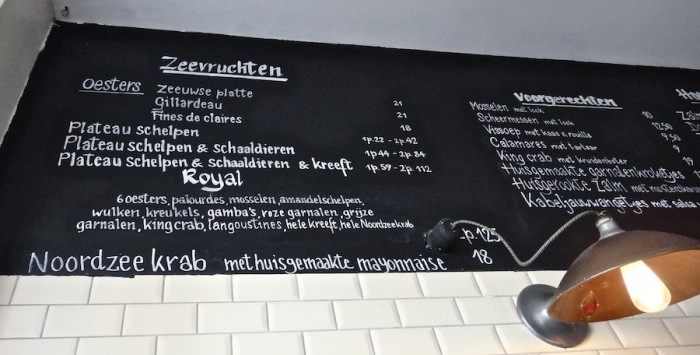 Zeevruchten
Oesters Zeeuwse platte
Gillardeau 21
Fines de claires 21
Plateau schelpen 18
Plateau schelpen & schaaldieren 1p.22 - 2p.42
Plateau schelpen & schaaldieren & kreeft 1p 44 - 2p. 84
1p.59 - 2p. 112
Royal
6 oesters, palourdes, mosselen, amandelschelpen,
wulken, kreukels, gamba's, roze garnalen, grijze
garnalen, king crab, langoustines, hele kreeft, hele Noordzee krab
2p. 125
Noordzee krab met huisgemaakte mayonnaise 18
Voorgerechten
Mosselen met look 10
Scheermessen met look 12,50
Vissoep met kaas & rouille
Calamares met tartaar 9
King crab met kruidenboter
Huisgemaakte garnalenkroketjes
Huisgerookte Zalm met
Kabeljauwwangetjes met salsa